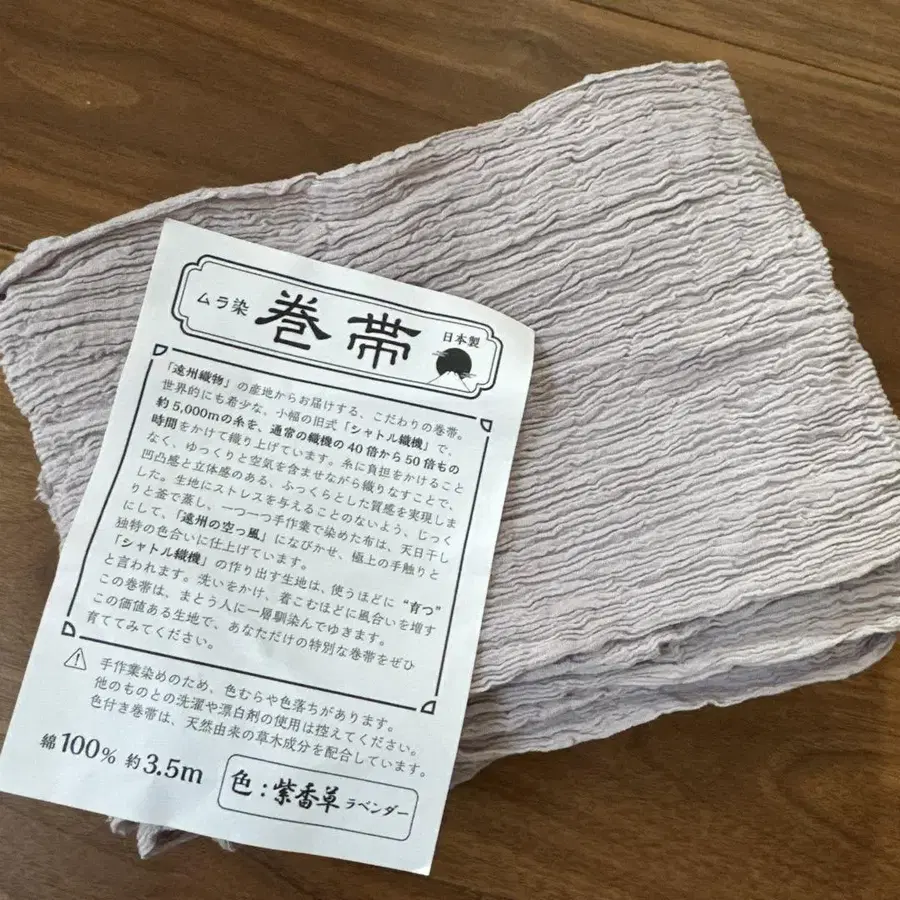 ムラ染 巻帯 日本製
「遠州織物」の産地からお届けする、こだわりの巻帯。
世界的にも希少な。小幅の旧式「シャトル織機」で、
約5,000mの糸を、通常の織機の40倍から50倍もの
時間をかけて織り上げています。糸に負担をかけること
なく、ゆっくりと空気を含ませながら織りなすことで、
凹凸感と立体感のある、ふっくらとした質感を実現しま
した。生地にストレスを与えることのないよう、じっく
りと釜で蒸し、一つ一つ手作業で染めた布は、天日干し
にして、「遠州の空っ風」になびかせ、極上の手触りと
独特の色合いに仕上げています。
「シャトル織機」の作り出す生地は、使うほどに“育つ”
と言われます。洗いをかけ、着こむほどに風合いを増す
この巻帯は、まとう人に一層馴染んでゆきます。
この価値ある生地で、あなただけの特別な巻帯をぜひ
育ててみてください。
手作業染めのため、色むらや色落ちがあります。
他のものとの洗濯や漂白剤の使用は控えてください。
色付き巻帯は、天然由来の草木成分を配合しています。
綿100% 約3.5m
色:紫香草 ラベンダー